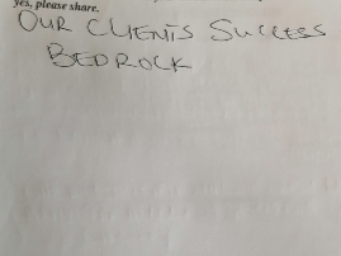 yes, please share.
OUR CLIENTS SUCCESS
BEDROCK